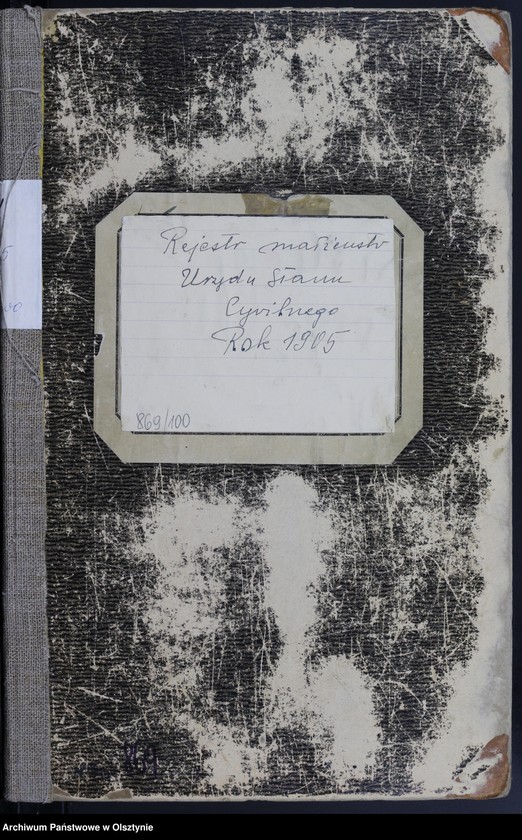 Rejestr małżeństw
Urzędu Stanu
Cywilnego
Rok 1905
869/100
5
869
Archiwum Państwowe w Olsztynie